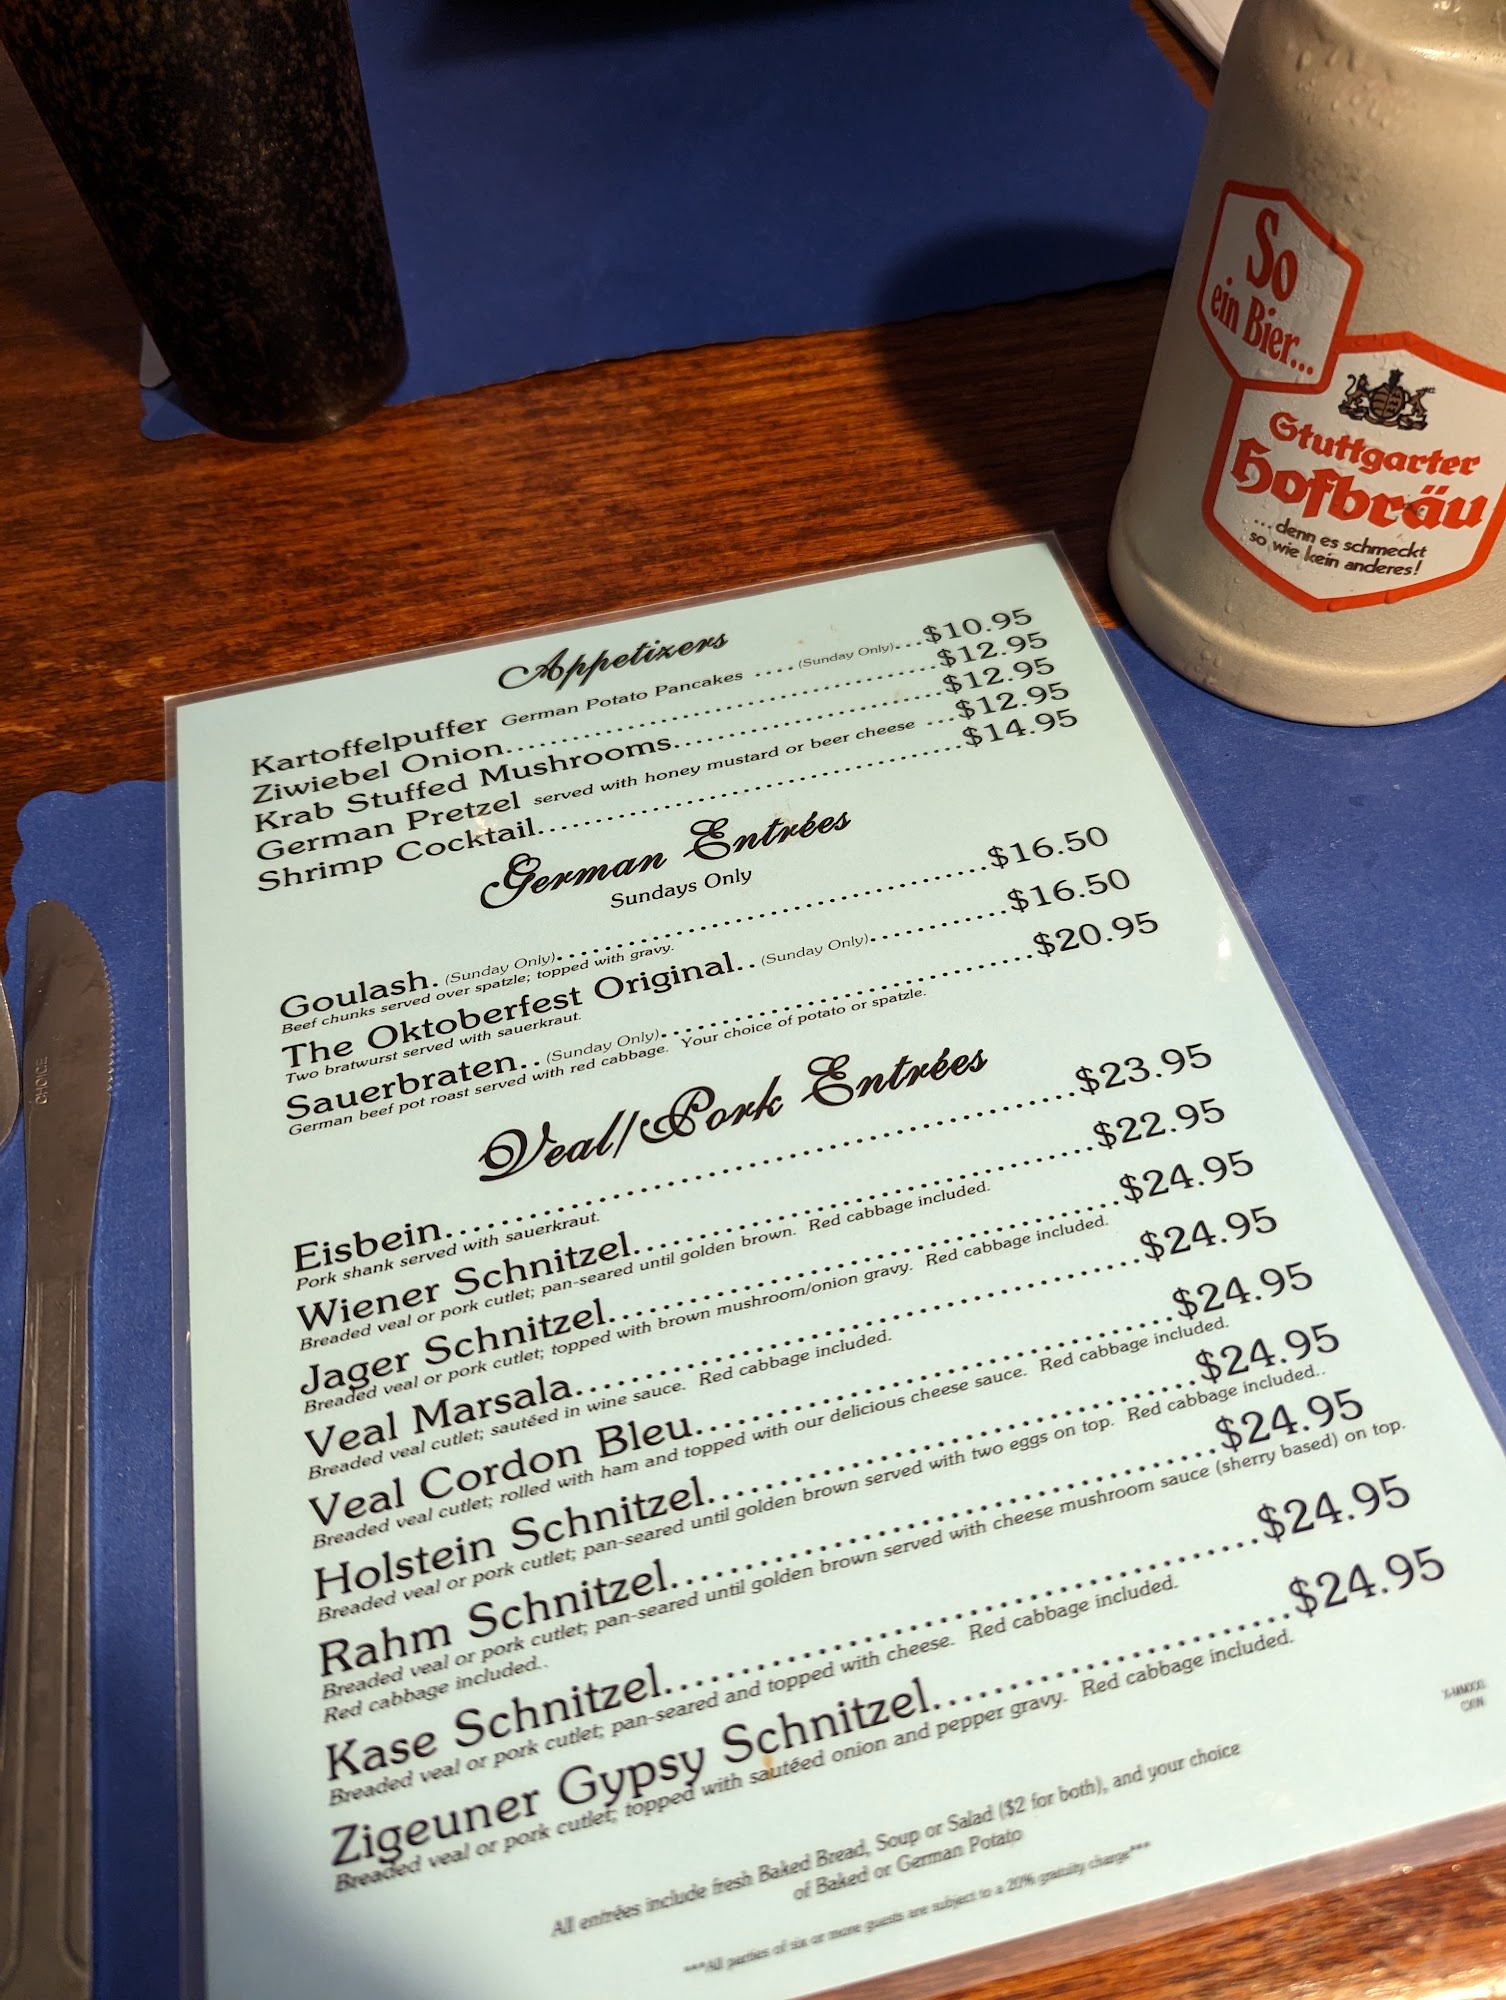 So
ein Bier...
Stuttgarter
Hofbräu
...denn es schmeckt
so wie kein anderes!
CHOICE
Appetizers
Kartoffelpuffer German Potato Pancakes ....(Sunday Only)...$10.95
Ziwiebel Onion...$12.95
Krab Stuffed Mushrooms...$12.95
German Pretzel served with honey mustard or beer cheese ...$12.95
Shrimp Cocktail...$14.95
German Entrées
Sundays Only
Goulash. (Sunday Only)...$16.50
Beef chunks served over spatzle; topped with gravy.
The Oktoberfest Original.. (Sunday Only)...$16.50
Two bratwurst served with sauerkraut.
Sauerbraten.. (Sunday Only)...$20.95
German beef pot roast served with red cabbage. Your choice of potato or spatzle.
Veal/Pork Entrées
Eisbein...$23.95
Pork shank served with sauerkraut.
Wiener Schnitzel...$22.95
Breaded veal or pork cutlet; pan-seared until golden brown. Red cabbage included.
Jager Schnitzel...$24.95
Breaded veal or pork cutlet; topped with brown mushroom/onion gravy. Red cabbage included.
Veal Marsala...$24.95
Breaded veal cutlet; sautéed in wine sauce. Red cabbage included.
Veal Cordon Bleu...$24.95
Breaded veal cutlet; rolled with ham and topped with our delicious cheese sauce. Red cabbage included.
Holstein Schnitzel...$24.95
Breaded veal or pork cutlet; pan-seared until golden brown served with two eggs on top. Red cabbage included..
Rahm Schnitzel...$24.95
Breaded veal or pork cutlet; pan-seared until golden brown served with cheese mushroom sauce (sherry based) on top.
Red cabbage included..
Kase Schnitzel...$24.95
Breaded veal or pork cutlet; pan-seared and topped with cheese. Red cabbage included.
Zigeuner Gypsy Schnitzel...$24.95
Breaded veal or pork cutlet; topped with sautéed onion and pepper gravy. Red cabbage included.
All entrées include fresh Baked Bread, Soup or Salad ($2 for both), and your choice
of Baked or German Potato
***All parties of six or more guests are subject to a 20% gratuity charge***